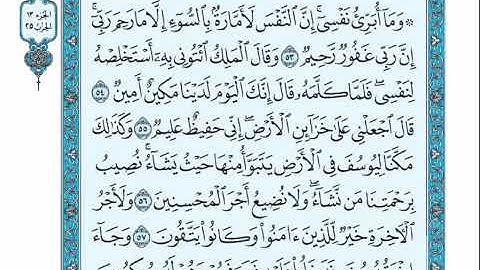 الجزء ١٣
الحزب ٢٥
۞ وَمَآ أُبَرِّئُ نَفْسِىٓ ۚ إِنَّ ٱلنَّفْسَ لَأَمَّارَةٌۢ بِٱلسُّوٓءِ إِلَّا مَا رَحِمَ رَبِّىٓ ۚ
إِنَّ رَبِّى غَفُورٌ رَّحِيمٌ ٥٣ وَقَالَ ٱلْمَلِكُ ٱئْتُونِى بِهِۦٓ أَسْتَخْلِصْهُ
لِنَفْسِى ۖ فَلَمَّا كَلَّمَهُۥ قَالَ إِنَّكَ ٱلْيَوْمَ لَدَيْنَا مَكِينٌ أَمِينٌ ٥٤
قَالَ ٱجْعَلْنِى عَلَىٰ خَزَآئِنِ ٱلْأَرْضِ ۖ إِنِّى حَفِيظٌ عَلِيمٌ ٥٥ وَكَذَٰلِكَ
مَكَّنَّا لِيُوسُفَ فِى ٱلْأَرْضِ يَتَبَوَّأُ مِنْهَا حَيْثُ يَشَآءُ ۚ نُصِيبُ
بِرَحْمَتِنَا مَن نَّشَآءُ ۖ وَلَا نُضِيعُ أَجْرَ ٱلْمُحْسِنِينَ ٥٦ وَلَأَجْرُ
ٱلْآخِرَةِ خَيْرٌ لِّلَّذِينَ ءَامَنُوا۟ وَكَانُوا۟ يَتَّقُونَ ٥٧ وَجَآءَ